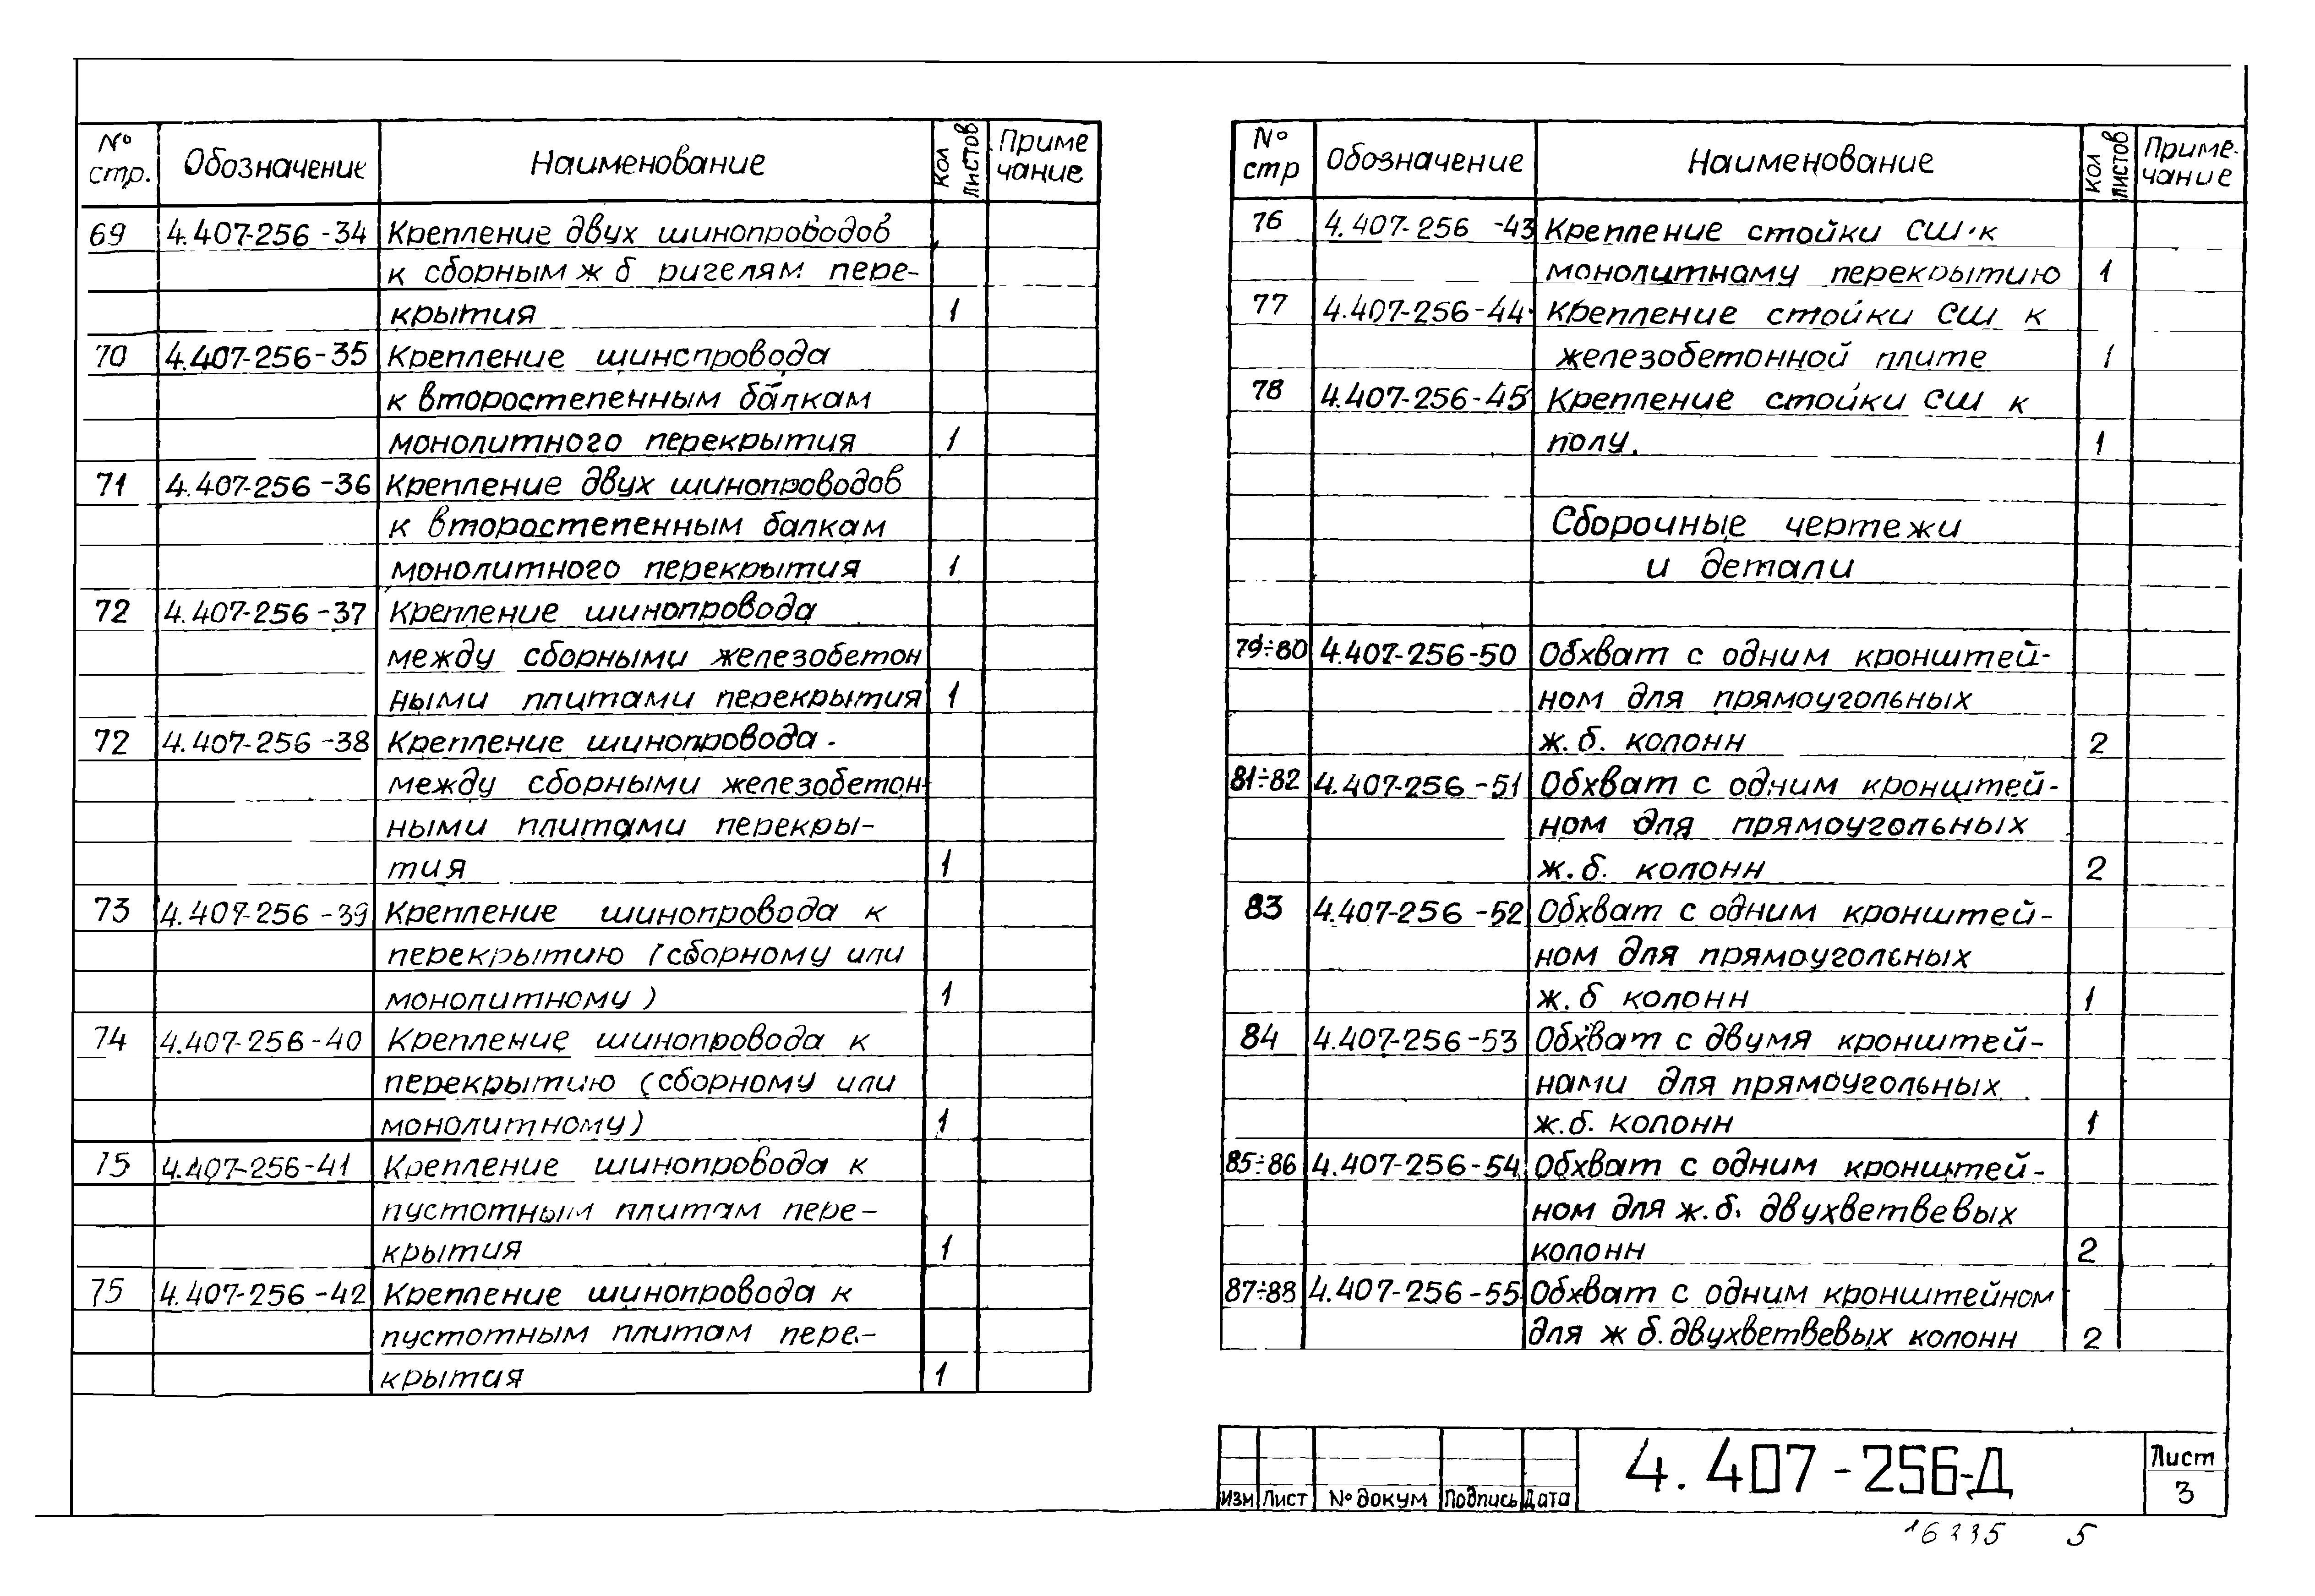 № стр. Обозначение Наименование Кол листов Приме чание
69 4.407-256-34 Крепление двух шинопроводов
к сборным ж б ригелям пере-
крытия 1
70 4.407-256-35 Крепление шинопровода
к второстепенным балкам
монолитного перекрытия 1
71 4.407-256-36 Крепление двух шинопроводов
к второстепенным балкам
монолитного перекрытия 1
72 4.407-256-37 Крепление шинопровода
между сборными железобетон
ными плитами перекрытия 1
72 4.407-256-38 Крепление шинопровода
между сборными железобетон-
ными плитами перекры-
тия 1
73 4.407-256-39 Крепление шинопровода к
перекрытию (сборному или
монолитному) 1
74 4.407-256-40 Крепление шинопровода к
перекрытию (сборному или
монолитному) 1
75 4.407-256-41 Крепление шинопровода к
пустотным плитам пере-
крытия 1
75 4.407-256-42 Крепление шинопровода к
пустотным плитам пере-
крытия 1
№ стр Обозначение Наименование Кол листов Приме- чание
76 4.407-256-43 Крепление стойки СШ к
монолитному перекрытию 1
77 4.407-256-44 Крепление стойки СШ к
железобетонной плите 1
78 4.407-256-45 Крепление стойки СШ к
полу. 1
Сборочные чертежи
и детали
79÷80 4.407-256-50 Обхват с одним кронштей-
ном для прямоугольных
ж.б. колонн 2
81÷82 4.407-256-51 Обхват с одним кронштей-
ном для прямоугольных
ж.б. колонн 2
83 4.407-256-52 Обхват с одним кронштей-
ном для прямоугольных
ж.б колонн 1
84 4.407-256-53 Обхват с двумя кронштей-
нами для прямоугольных
ж.б. колонн 1
85÷86 4.407-256-54 Обхват с одним кронштей-
ном для ж.б. двухветвевых
колонн 2
87÷88 4.407-256-55 Обхват с одним кронштейном
для ж б. двухветвевых колонн 2
Изм Лист № докум Подпись Дата
4.407-256-Д
Лист
3
16235 5